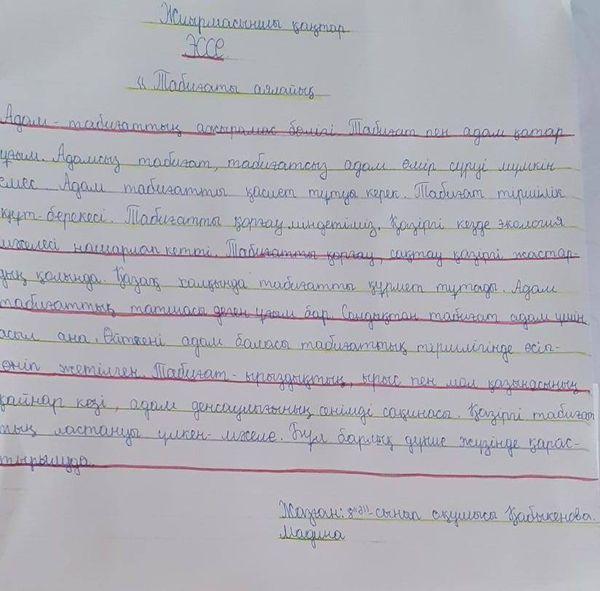 Жиырмасыншы қаңтар
ЭССЕ
« Табиғаты аялайық
Адам - табиғаттың ажырамас бөлігі. Табиғат пен адам қатар
ұғым. Адамсыз табиғат, табиғатсыз адам өмір сүруі мүмкін
емес. Адам табиғатты қасиет тұтуы керек. Табиғат тіршілік
құт-берекесі. Табиғатты қорғау міндетіміз. Қазіргі кезде экология
мәселесі нашарлап кетті. Табиғатты қорғау, сақтау қазіргі жастар-
дың қолында. Қазақ халқында табиғатты құрмет тұтады. Адам
табиғаттың патшасы деген ұғым бар. Сондықтан табиғат адам үшін
асыл ана. Өйткені адам баласы табиғаттың тіршілігінде өсіп-
өніп жетілген. Табиғат - ырыздықтың, ырыс пен мал қазынасының
қайнар көзі, адам денсаулығының сенімді сақинасы. Қазіргі табиғат
тың ластануы үлкен- мәселе. Бұл барлық дүние жүзінде қарас-
тырылуда.
Жазған: сынып оқушысы Қабыкенова
Мадина